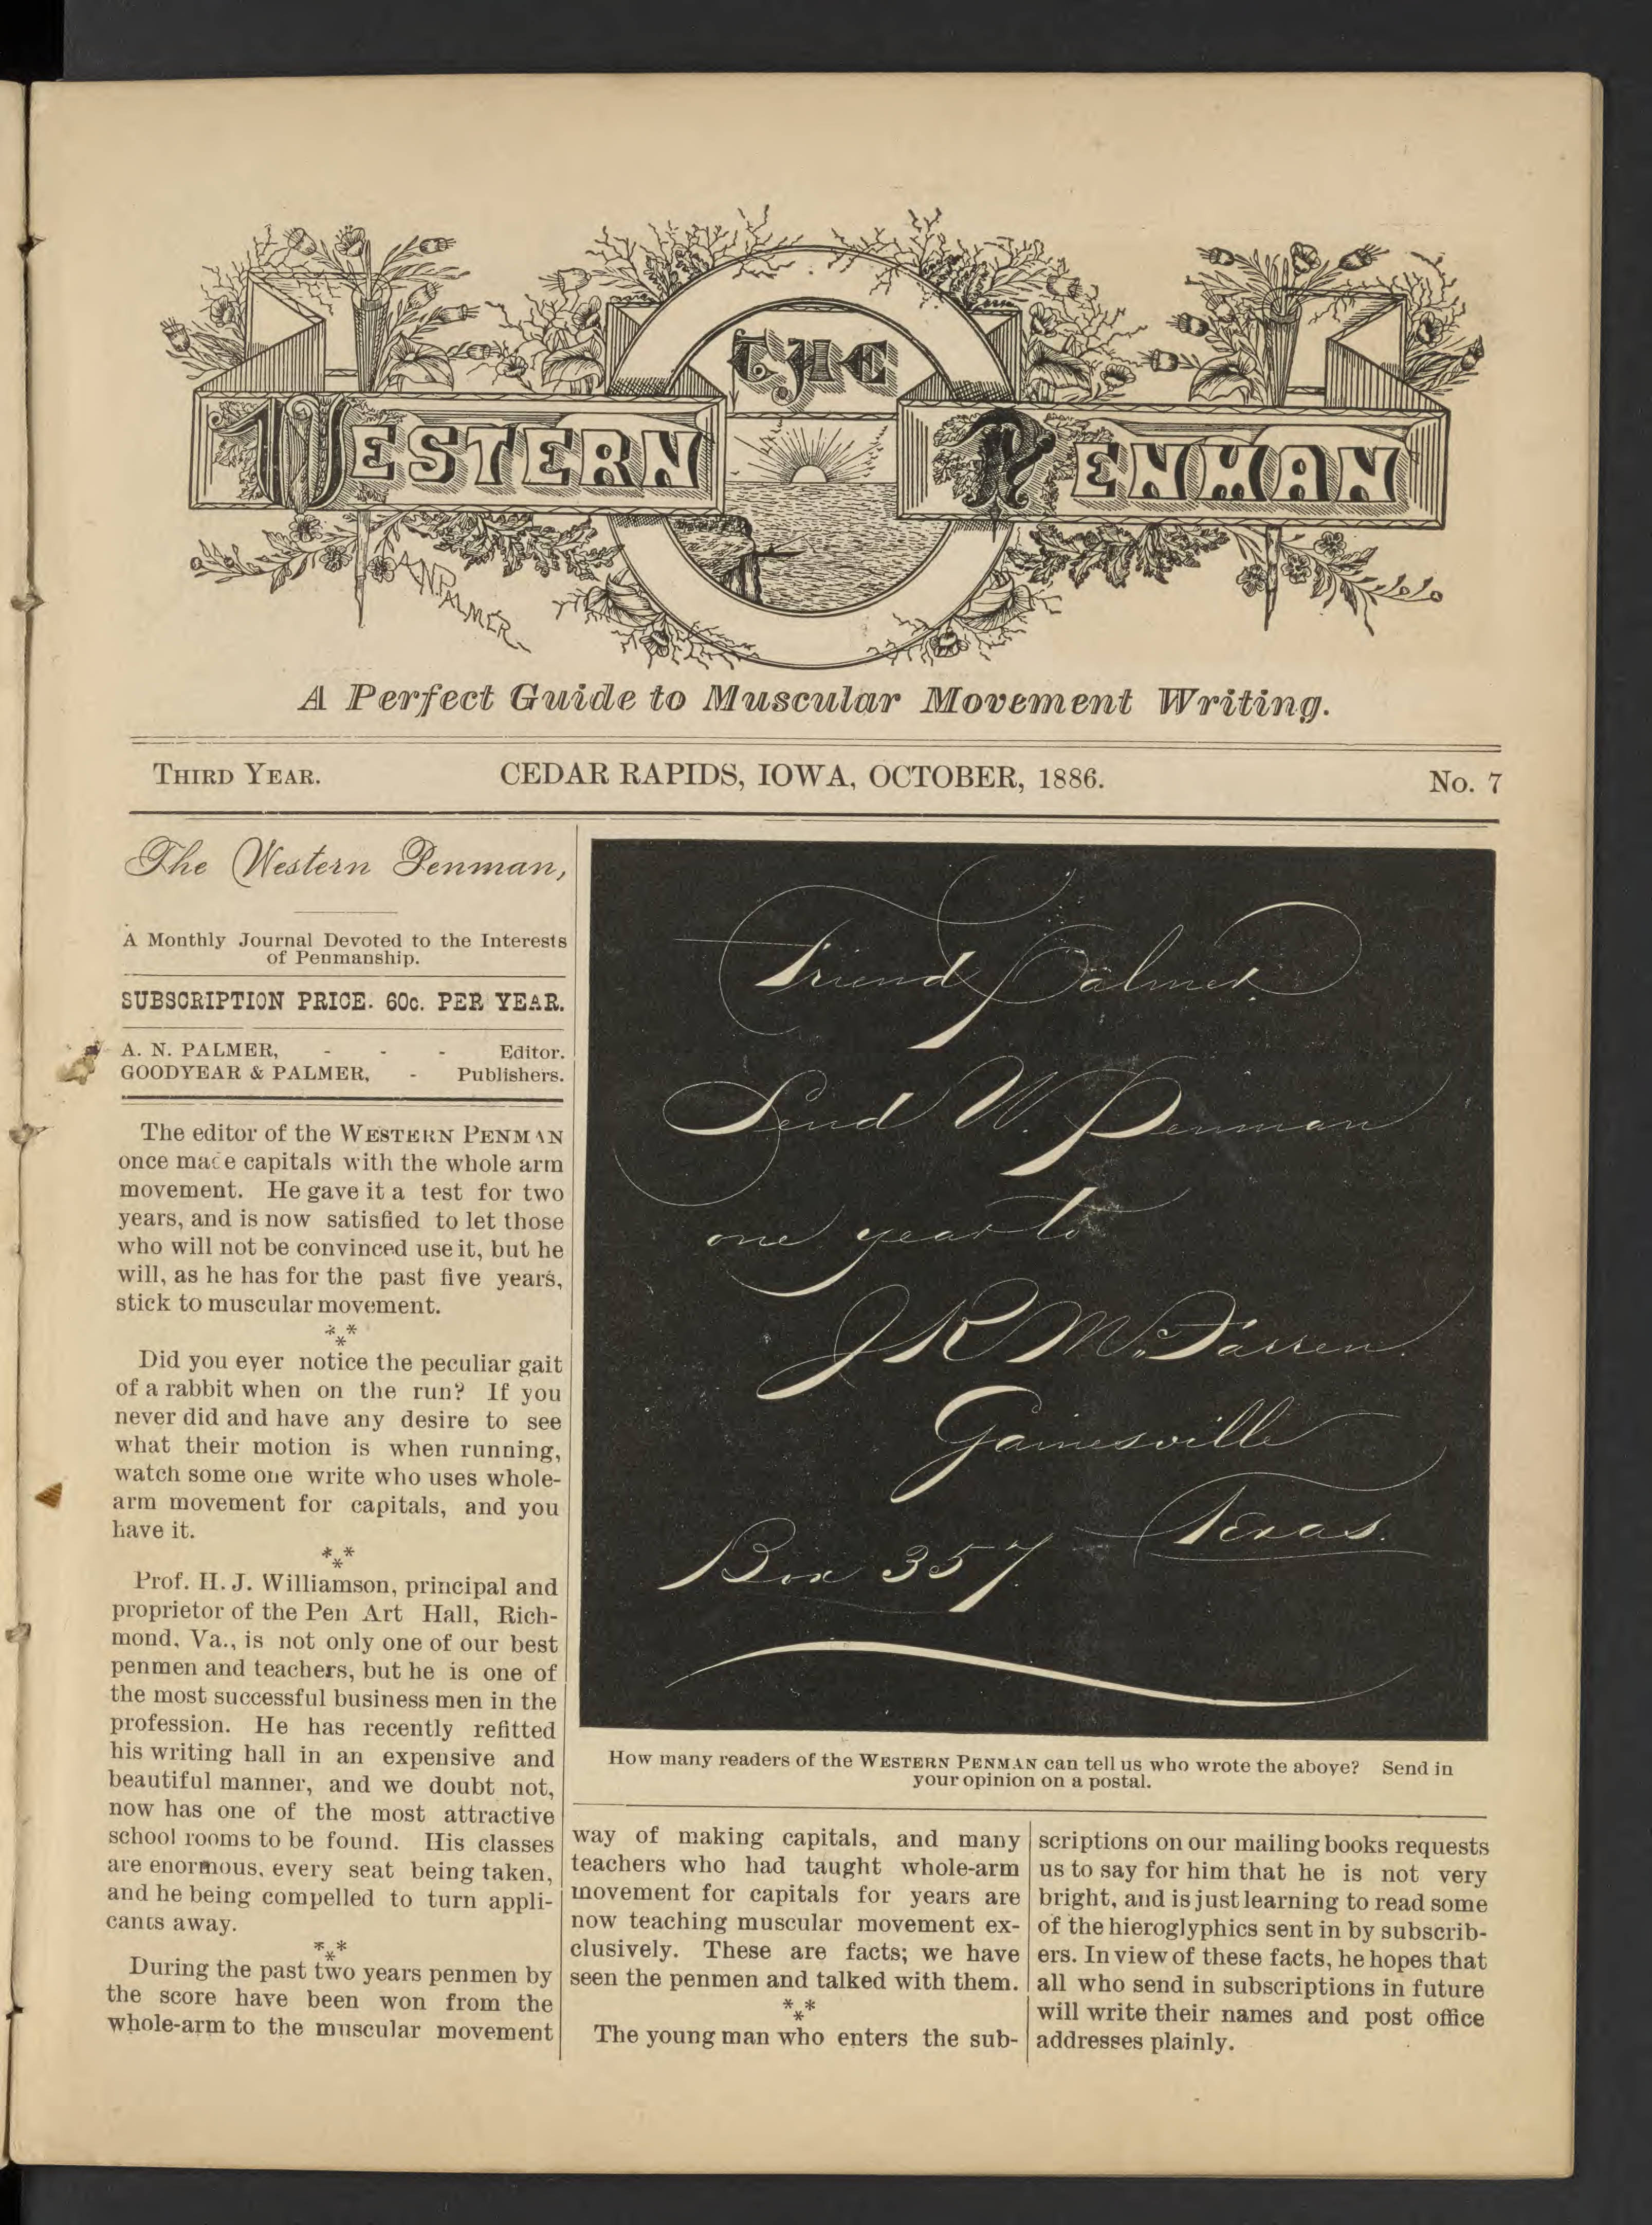 THE
WESTERN PENMAN
A.N. PALMER
A Perfect Guide to Muscular Movement Writing.
THIRD YEAR. CEDAR RAPIDS, IOWA, OCTOBER, 1886. No. 7
The Western Penman,
A Monthly Journal Devoted to the Interests
of Penmanship.
SUBSCRIPTION PRICE. 60c. PER YEAR.
A. N. PALMER, - - - Editor.
GOODYEAR & PALMER, - Publishers.
The editor of the WESTERN PENMAN
once mace capitals with the whole arm
movement. He gave it a test for two
years, and is now satisfied to let those
who will not be convinced use it, but he
will, as he has for the past five years,
stick to muscular movement.
***
Did you ever notice the peculiar gait
of a rabbit when on the run? If you
never did and have any desire to see
what their motion is when running,
watch some one write who uses whole-
arm movement for capitals, and you
have it.
***
Prof. H. J. Williamson, principal and
proprietor of the Pen Art Hall, Rich-
mond, Va., is not only one of our best
penmen and teachers, but he is one of
the most successful business men in the
profession. He has recently refitted
his writing hall in an expensive and
beautiful manner, and we doubt not,
now has one of the most attractive
school rooms to be found. His classes
are enormous, every seat being taken,
and he being compelled to turn appli-
cants away.
***
During the past two years penmen by
the score have been won from the
whole-arm to the muscular movement
Friend Palmer
Send W. Penman
one year to
J R McFarren.
Gainesville
Texas.
Box 357.
How many readers of the WESTERN PENMAN can tell us who wrote the above? Send in
your opinion on a postal.
way of making capitals, and many
teachers who had taught whole-arm
movement for capitals for years are
now teaching muscular movement ex-
clusively. These are facts; we have
seen the penmen and talked with them.
***
The young man who enters the sub-
scriptions on our mailing books requests
us to say for him that he is not very
bright, and is just learning to read some
of the hieroglyphics sent in by subscrib-
ers. In view of these facts, he hopes that
all who send in subscriptions in future
will write their names and post office
addresses plainly.